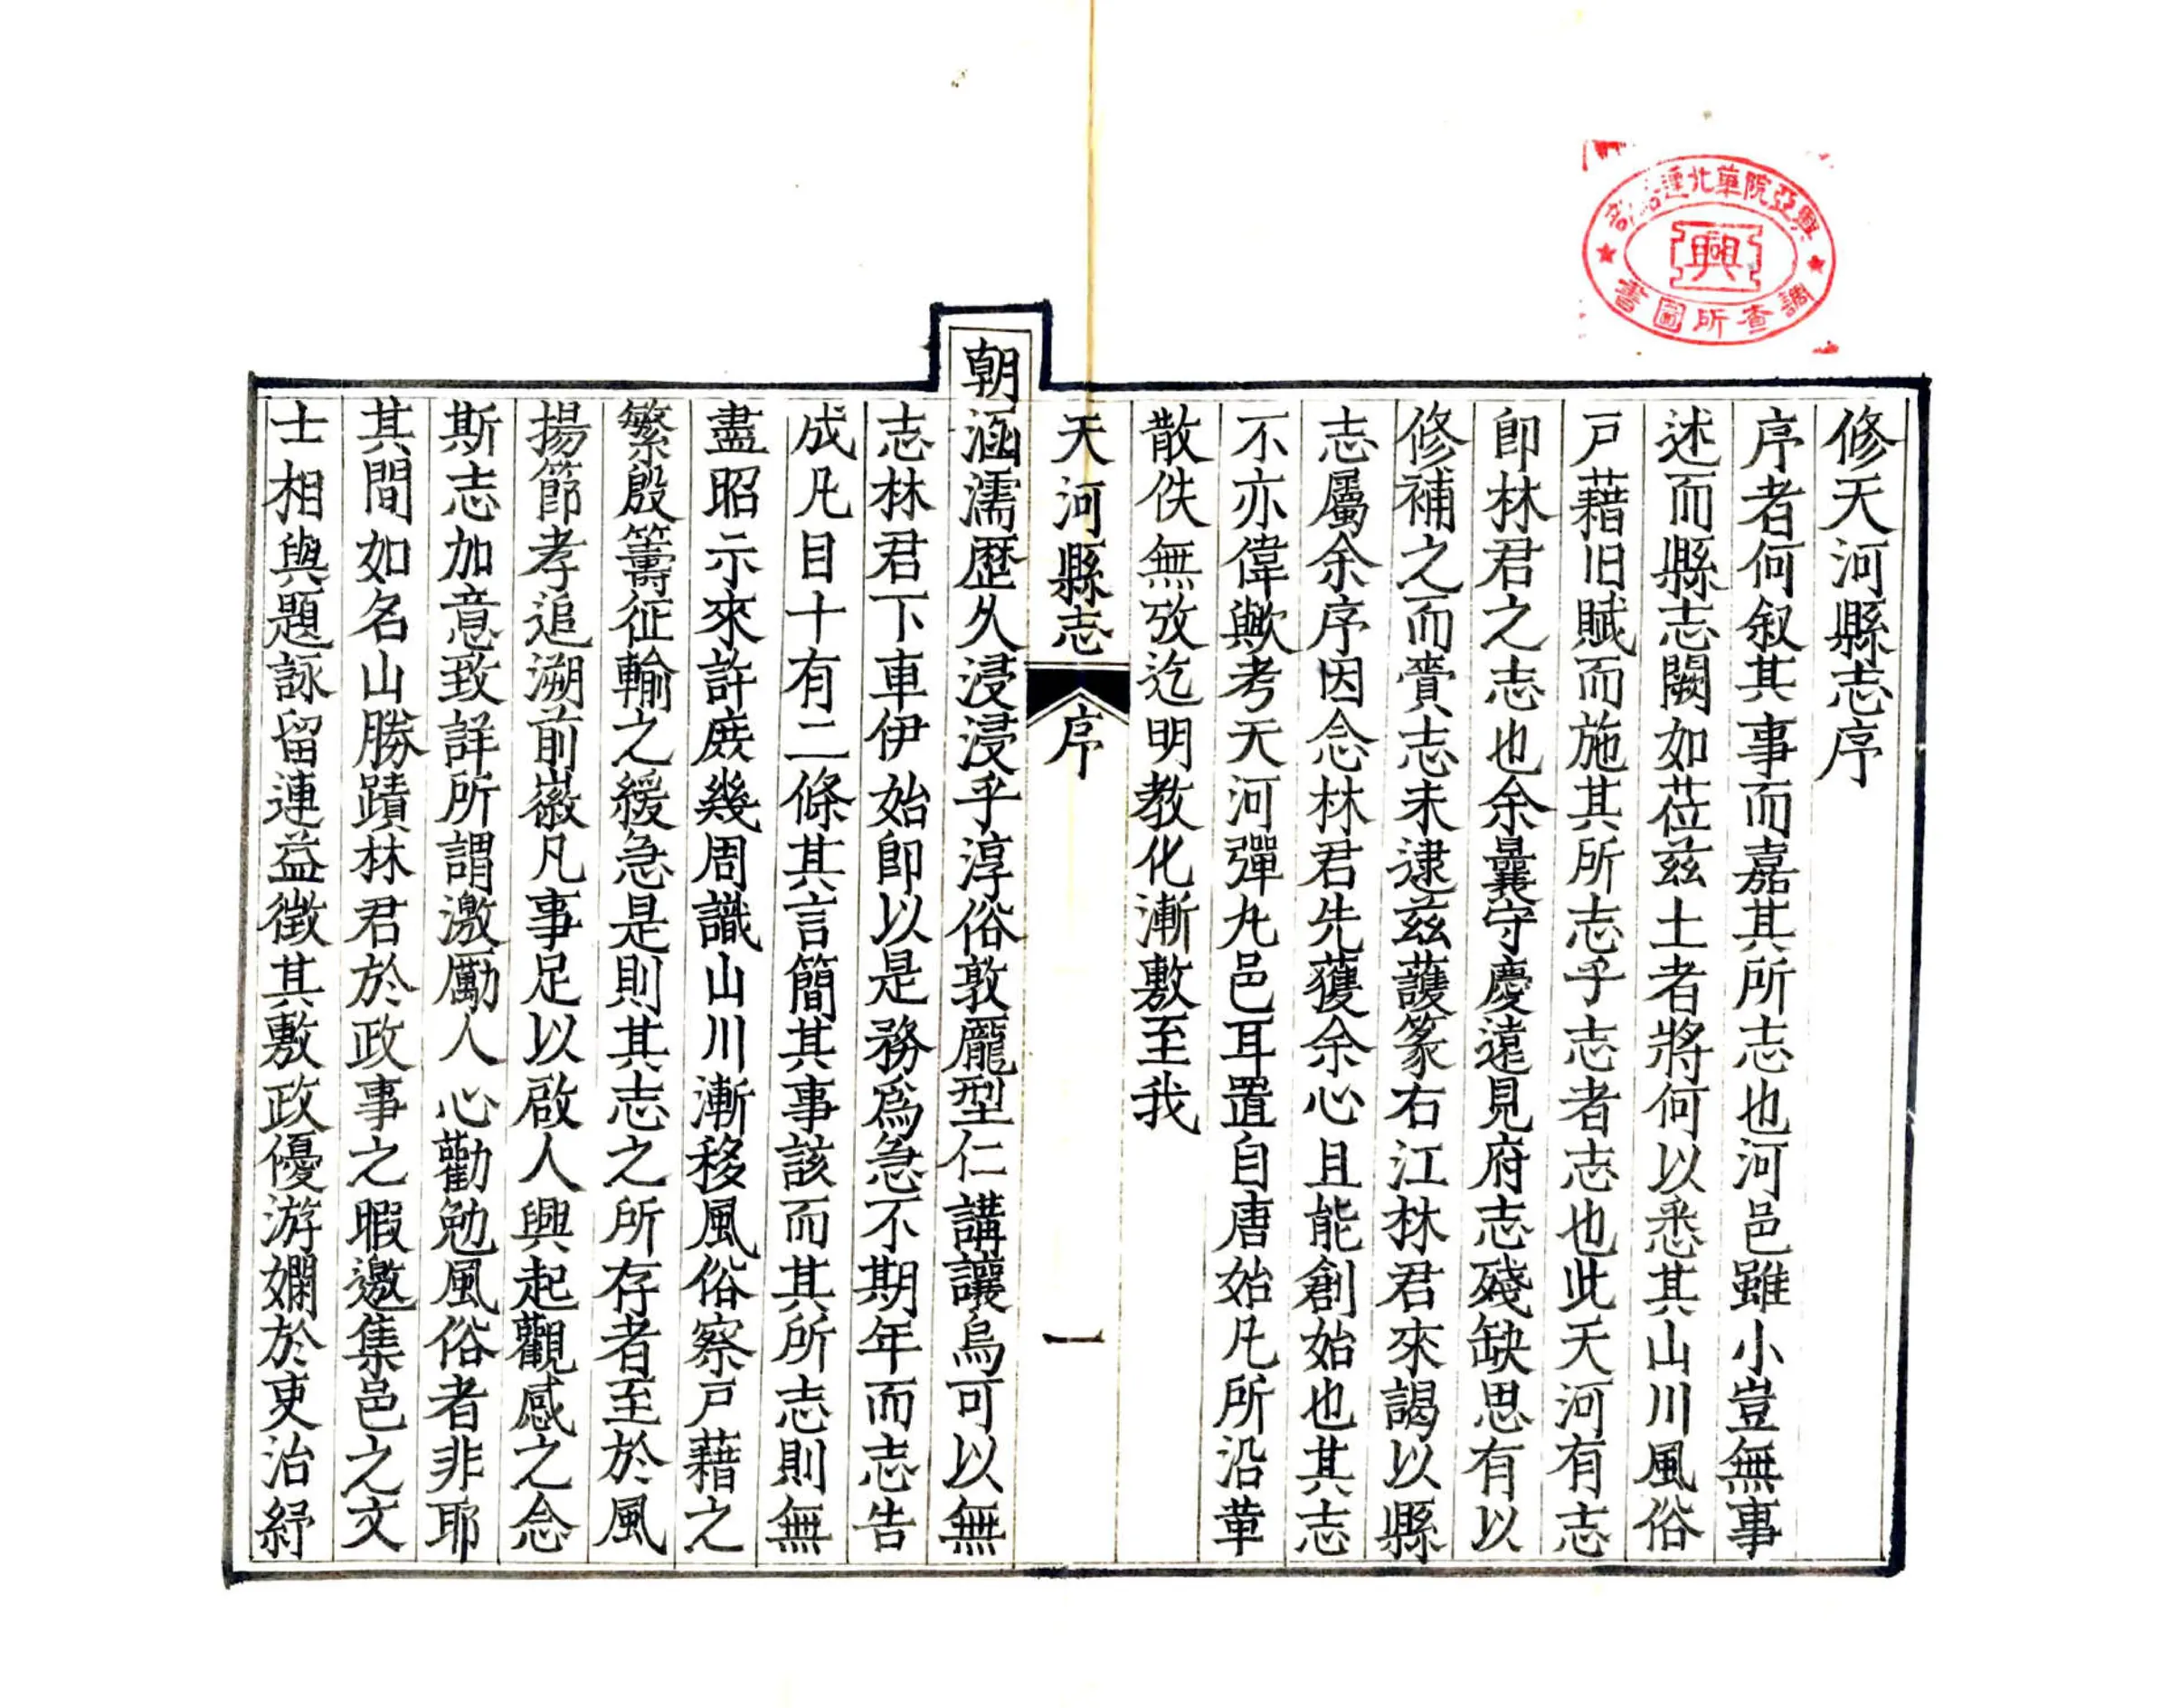 修天河縣志序
序者何叙其事而嘉其所志也河邑雖小豈無事
述而縣志闕如莅兹土者將何以悉其山川風俗
戸藉旧賦而施其所志乎志者志也此天河有志
卽林君之志也余曩守慶遠見府志殘缺思有以
修補之而賫志未逮兹護篆右江林君來謁以縣
志屬余序因念林君先獲余心且能創始也其志
不亦偉歟考天河彈丸邑耳置自唐始凡所沿革
散佚無攷迄明教化漸敷至我
天河縣志 序 一
朝涵濡歷久浸浸乎淳俗敦龐型仁講讓烏可以無
志林君下車伊始卽以是務爲急不期年而志告
成凡目十有二條其言簡其事該而其所志則無
盡昭示來許庶幾周識山川漸移風俗察戸藉之
繁殷籌征輸之緩急是則其志之所存者至於風
揚節孝追溯前徽凡事足以啟人興起觀感之念
斯志加意致詳所謂激厲人心勸勉風俗者非耶
其間如名山勝蹟林君於政事之暇邀集邑之文
士相與題詠留連益徵其敷政優游嫻於吏治紓
興亞院華北連絡部
興
調查所圖書